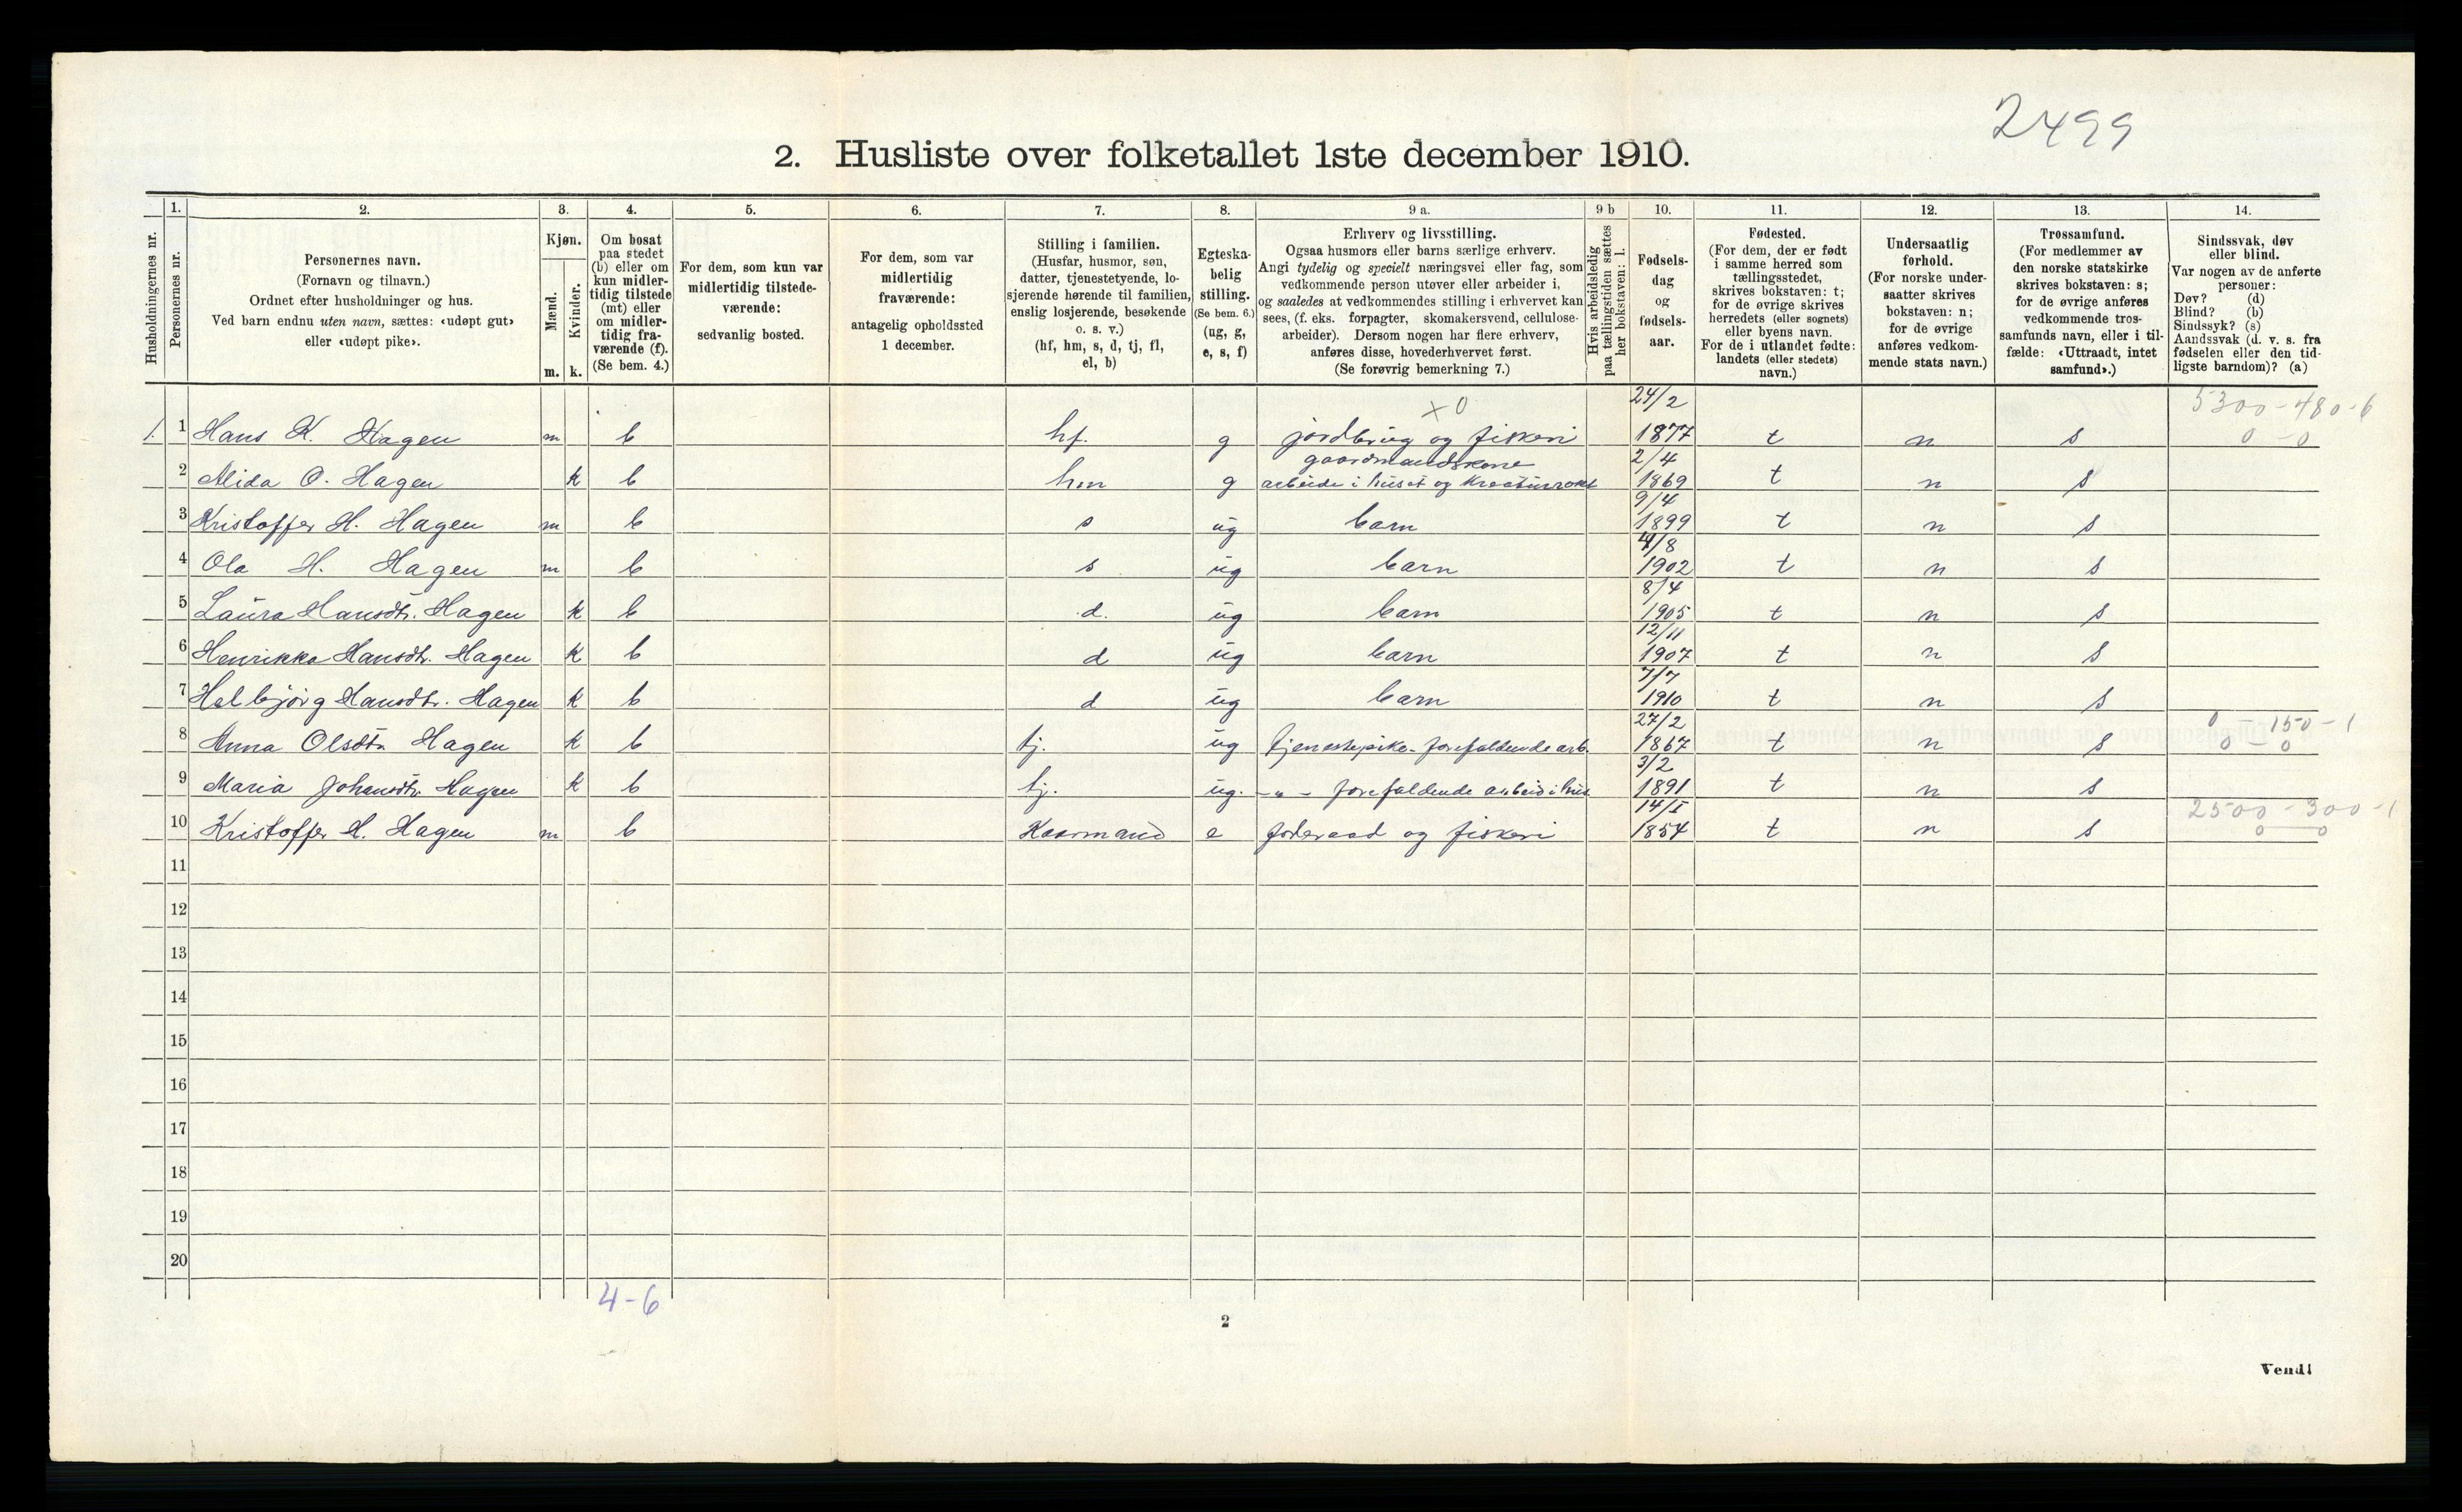 2499
2. Husliste over folketallet 1ste december 1910.
1. 2. 3. 4. 5. 6. 7. 8. 9 a. 9 b 10. 11. 12. 13. 14.
Husholdningernes nr.
Personernes nr.
Personernes navn.
(Fornavn og tilnavn.)
Ordnet efter husholdninger og hus.
Ved barn endnu uten navn, sættes: «udøpt gut»
eller «udøpt pike».
Kjøn.
Mænd.
Kvinder.
m. k.
Om bosat
paa stedet
(b) eller om
kun midler-
tidig tilstede
(mt) eller
om midler-
tidig fra-
værende (f).
(Se bem. 4.)
For dem, som kun var
midlertidig tilstede-
værende:
sedvanlig bosted.
For dem, som var
midlertidig
fraværende:
antagelig opholdssted
1 december.
Stilling i familien.
(Husfar, husmor, søn,
datter, tjenestetyende, lo-
sjerende hørende til familien,
enslig losjerende, besøkende
o. s. v.)
(hf, hm, s, d, tj, fl,
el, b)
Egteska-
belig
stilling.
(Se bem. 6.)
(ug, g,
e, s, f)
Erhverv og livsstilling.
Ogsaa husmors eller barns særlige erhverv.
Angi tydelig og specielt næringsvei eller fag, som
vedkommende person utøver eller arbeider i,
og saaledes at vedkommendes stilling i erhvervet kan
sees, (f. eks. forpagter, skomakersvend, cellulose-
arbeider). Dersom nogen har flere erhverv,
anføres disse, hovederhvervet først.
(Se forøvrig bemerkning 7.)
Hvis arbeidsledig
paa tællingstiden sættes
her bokstaven: l.
Fødsels-
dag
og
fødsels-
aar.
Fødested.
(For dem, der er født
i samme herred som
tællingsstedet,
skrives bokstaven: t;
for de øvrige skrives
herredets (eller sognets)
eller byens navn.
For de i utlandet fødte:
landets (eller stedets)
navn.)
Undersaatlig
forhold.
(For norske under-
saatter skrives
bokstaven: n;
for de øvrige
anføres vedkom-
mende stats navn.)
Trossamfund.
(For medlemmer av
den norske statskirke
skrives bokstaven: s;
for de øvrige anføres
vedkommende tros-
samfunds navn, eller i til-
fælde: «Uttraadt, intet
samfund».)
Sindssvak, døv
eller blind.
Var nogen av de anførte
personer:
Døv? (d)
Blind? (b)
Sindssyk? (s)
Aandssvak (d. v. s. fra
fødselen eller den tid-
ligste barndom)? (a)
x 0 24/2 5300-480-6
1. 1 Hans K. Hagen m b hf. g jordbrug og fiskeri 1877 t n s 0-0
gaardmandskone 2/4
2 Alida O. Hagen k b hm g arbeide i huset og Kreaturrokt 1869 t n s
9/4
3 Kristoffer H. Hagen m b s ug barn 1899 t n s
4/8
4 Ola H. Hagen m b s ug barn 1902 t n s
8/4
5 Laura Hansdtr. Hagen k b d. ug barn 1905 t n s
12/11
6 Henrikka Hansdtr. Hagen k b d ug barn 1907 t n s
7/7
7 Halbjørg Hansdtr. Hagen k b d ug barn 1910 t n s
27/2 0-150-1
8 Anna Olsdtr Hagen k b tj. ug tjenestepike-forefaldende arb. 1867 t n s 0-0
3/2
9 Maria Johansdtr Hagen k b tj. ug. -"- forefaldende arbeid i hus 1891 t n s
14/1 2500-300-1
10 Kristoffer H. Hagen m b Kaarmand e foderaad og fiskeri 1854 t n s 0 0
11
12
13
14
15
16
17
18
19
20
4-6
2
Vend!